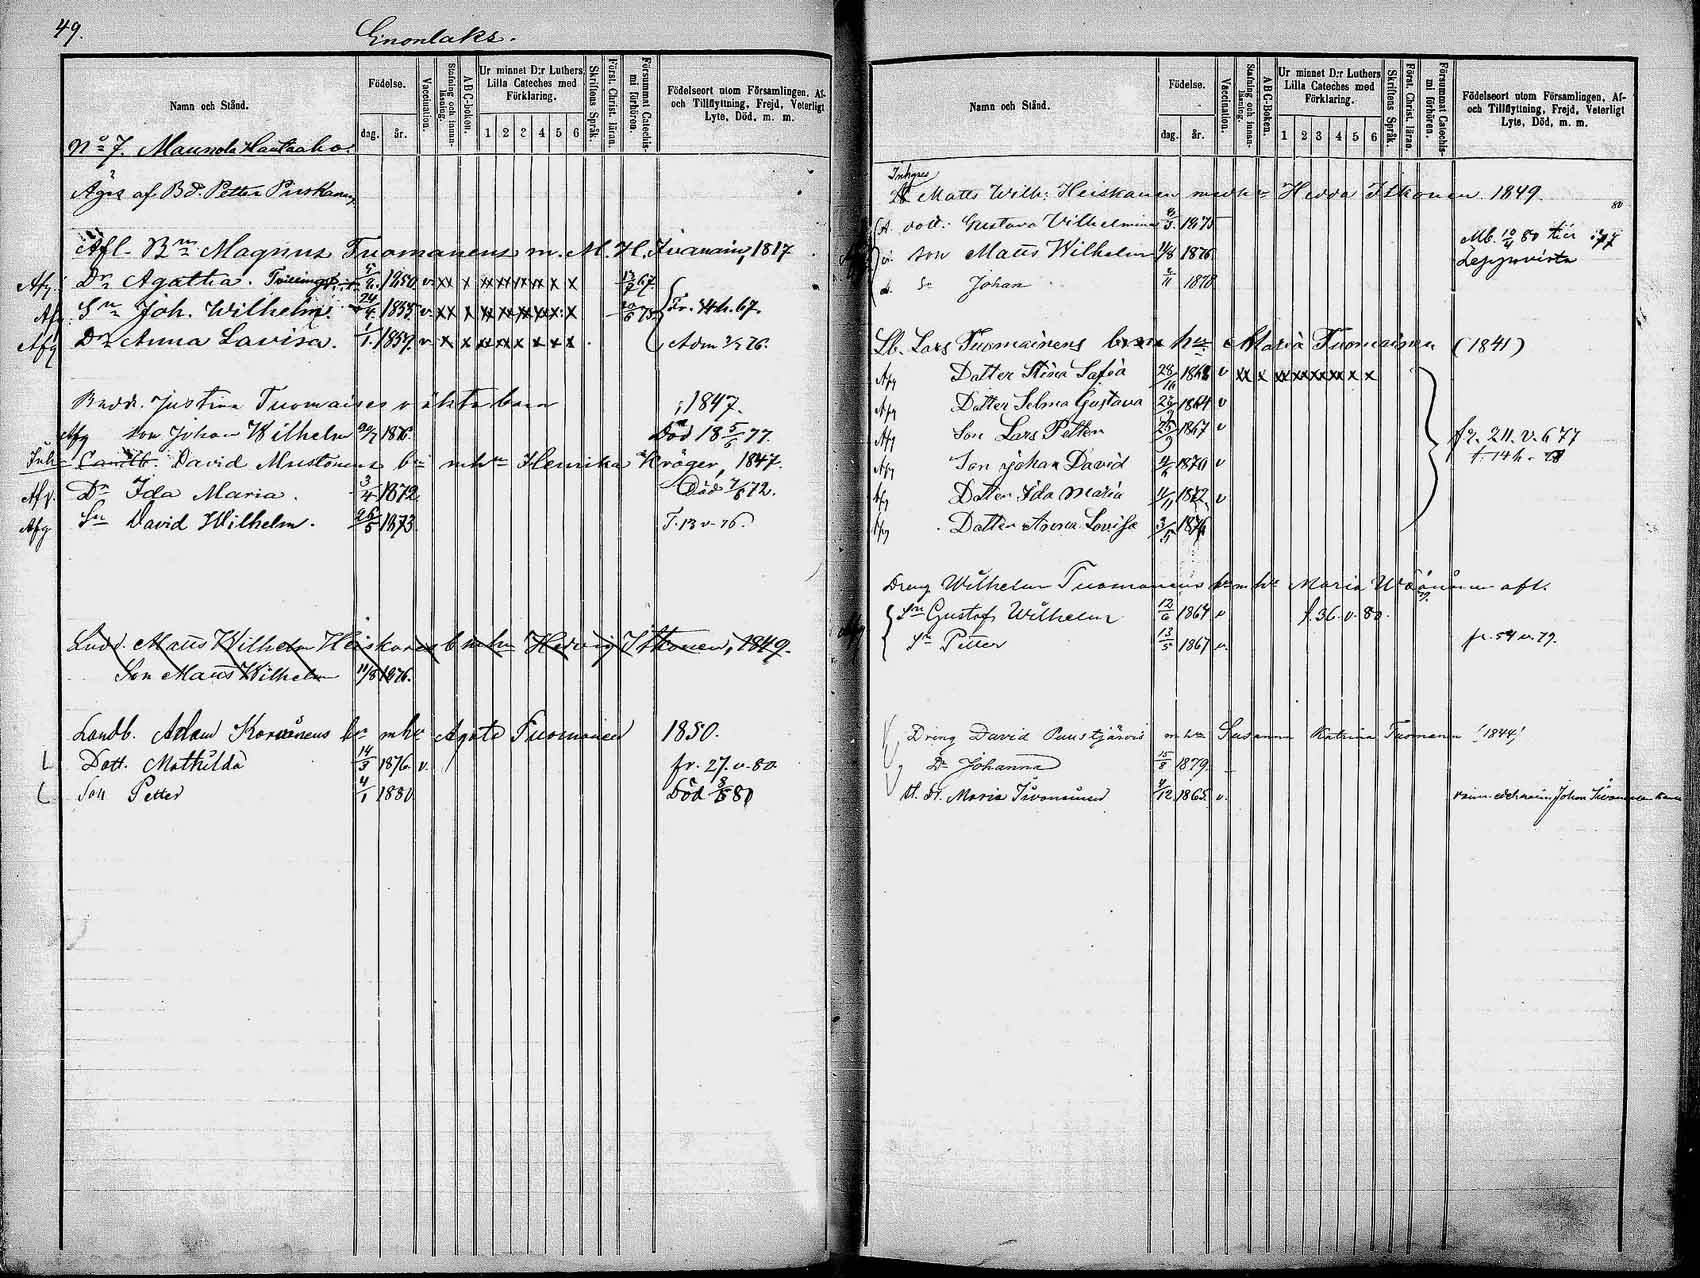 49.
Enonlaks.
Namn och Stånd.
Födelse.
dag. år.
Vaccination.
Stafning och innanläsning.
A-B-C-boken.
Ur minnet D:r Luthers Lilla Cateches med Förklaring.
1 2 3 4 5 6
Skriftens Språk.
Först. Christ. läran.
Försummat Catechismi förhören.
Födelseort utom Församlingen, Af- och Tillflyttning, Frejd, Veterligt Lyte, Död, m. m.
No 7. Maunola Hautaaho.
Äges af Bd. Petter Puskanen
Afl. Bn Magnus Tuomanens m. M. H. Ivanain, 1817
Afg Dr Agatha. Tvilling 1850 v. xx x xx xx x x x x
Afg Sn Joh. Wilhelm. 24/4 1855 v. xx x xx xx xx x x Fr. 44h.67.
Afg Dr Anna Lavisa. 1/1 1859 v. x x xx xx x x x x Adm 3/5 76.
Justina Tuomaises o äkta barn 1847.
Afg son Johan Wilhelm 20/7 1876. Död 18 5/6 77.
Landb. David Mustonens bn mhu Henrika Kröger, 1847.
Afg. Dr Ida Maria. 3/4 1872 Död 7/8 72.
Afg Sn David Wilhelm. 26/5 1873 T. 13 v. 76.
Matts Wilhelm Heiskanens b mhu Hedvig Itkonen, 1849.
Son Matts Wilhelm 11/8 1876.
Landb. Adam Korvänens bn mhu Agata Tuomainen 1850.
Dott. Mathilda 14/9 1876 v. fr. 27. v. 80
Son Petter 4/1 1880 Död 8/5 80
Namn och Stånd.
Födelse.
dag. år.
Vaccination.
Stafning och innanläsning.
A-B-C-Boken.
Ur minnet D:r Luthers Lilla Cateches med Förklaring.
1 2 3 4 5 6
Skriftens Språk.
Först. Christ. läran.
Försummat Catechismi förhören.
Födelseort utom Församlingen, Af- och Tillflyttning, Frejd, Veterligt Lyte, Död, m. m.
Inhyses
Matts Wilh: Heiskanen med hu Hedda Itkonen 1849.
dott: Gustava Vilhelmina 8/3 1875
son Matts Wilhelm 11/8 1876 Mb. 10/4 80 till Leppävirta
Sn Johan 1878
Lb. Lars Tuomainens barn hu Maria Tuomainen (1841)
Afg Dotter Stina Safia 28/10 1862 v xx x xx xx xx x x x
Afg Dotter Selma Gustava 1864 v
Afg Son Lars Petter 1867 v fr. 211. v. 677
Afg Son Johan David 1870 v
Afg Dotter Ida Maria 1872 v
Afg Dotter Anna Lovisa 3/5 1876
Dreng Wilhelm Tuomanens bn mhu Maria Wäänänen aft.
Sn Gustaf Wilhelm 12/6 1864 v f. 36 v. 80.
Sn Petter 13/5 1867 v. fr. 54 v. 79.
Dreng David Puustjärvis mhu Susanna Katrina Tuomanen (1844)
Dr Johanna 15/8 1879
Maria Iivonainen 4/12 1865 v.